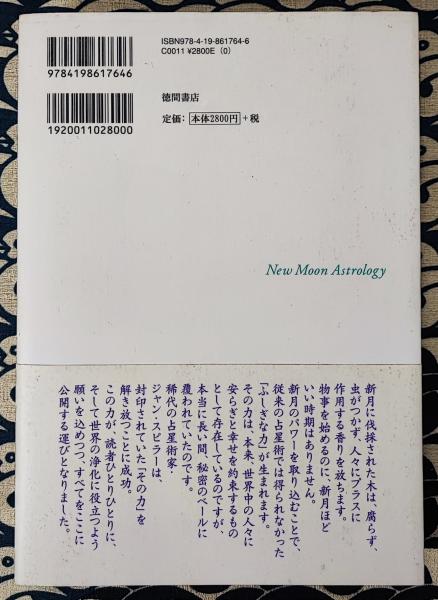 ISBN978-4-19-861764-6
C0011 ¥2800E (0)
9784198617646
徳間書店
1920011028000
定価: 本体2800円 +税
New Moon Astrology
新月に伐採された木は、腐らず、
虫がつかず、人々にプラスに
作用する香りを放ちます。
物事を始めるのに、新月ほど
いい時期はありません。
新月のパワーを取り込むことで、
従来の占星術では得られなかった
「ふしぎな力」が生まれます。
その力は、本来、世界中の人々に
安らぎと幸せを約束するもの
として存在しているのですが、
本当に長い間、秘密のベールに
覆われていたのです。
稀代の占星術家・
ジャン・スピラーは、
封印されていた「その力」を
解き放つことに成功。
この力が、読者ひとりひとりに、
そして世界の浄化に役立つよう
願いを込めつつ、すべてをここに
公開する運びとなりました。